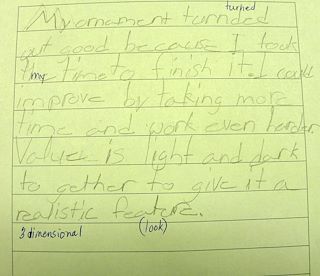 turned
My ornament turnded
out good because I took
my time to finish it. I could
improve by taking more
time and work even harder.
Value is light and dark
to gether to give it a
realistic feature.
3 dimensional (look)